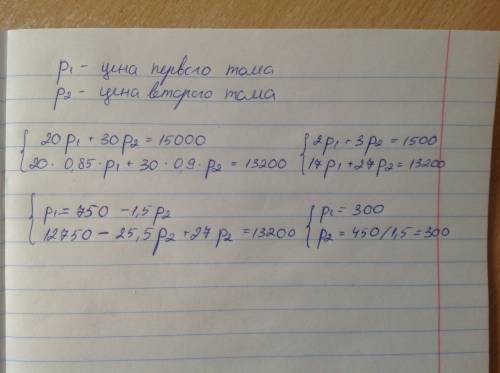 p1 - цена первого тома
p2 - цена второго тома
{ 20p1 + 30p2 = 15000
20 · 0,85 · p1 + 30 · 0,9 · p2 = 13200
{ 2p1 + 3p2 = 1500
17p1 + 27p2 = 13200
{ p1 = 750 - 1,5p2
12750 - 25,5p2 + 27p2 = 13200
{ p1 = 300
p2 = 450/1,5 = 300